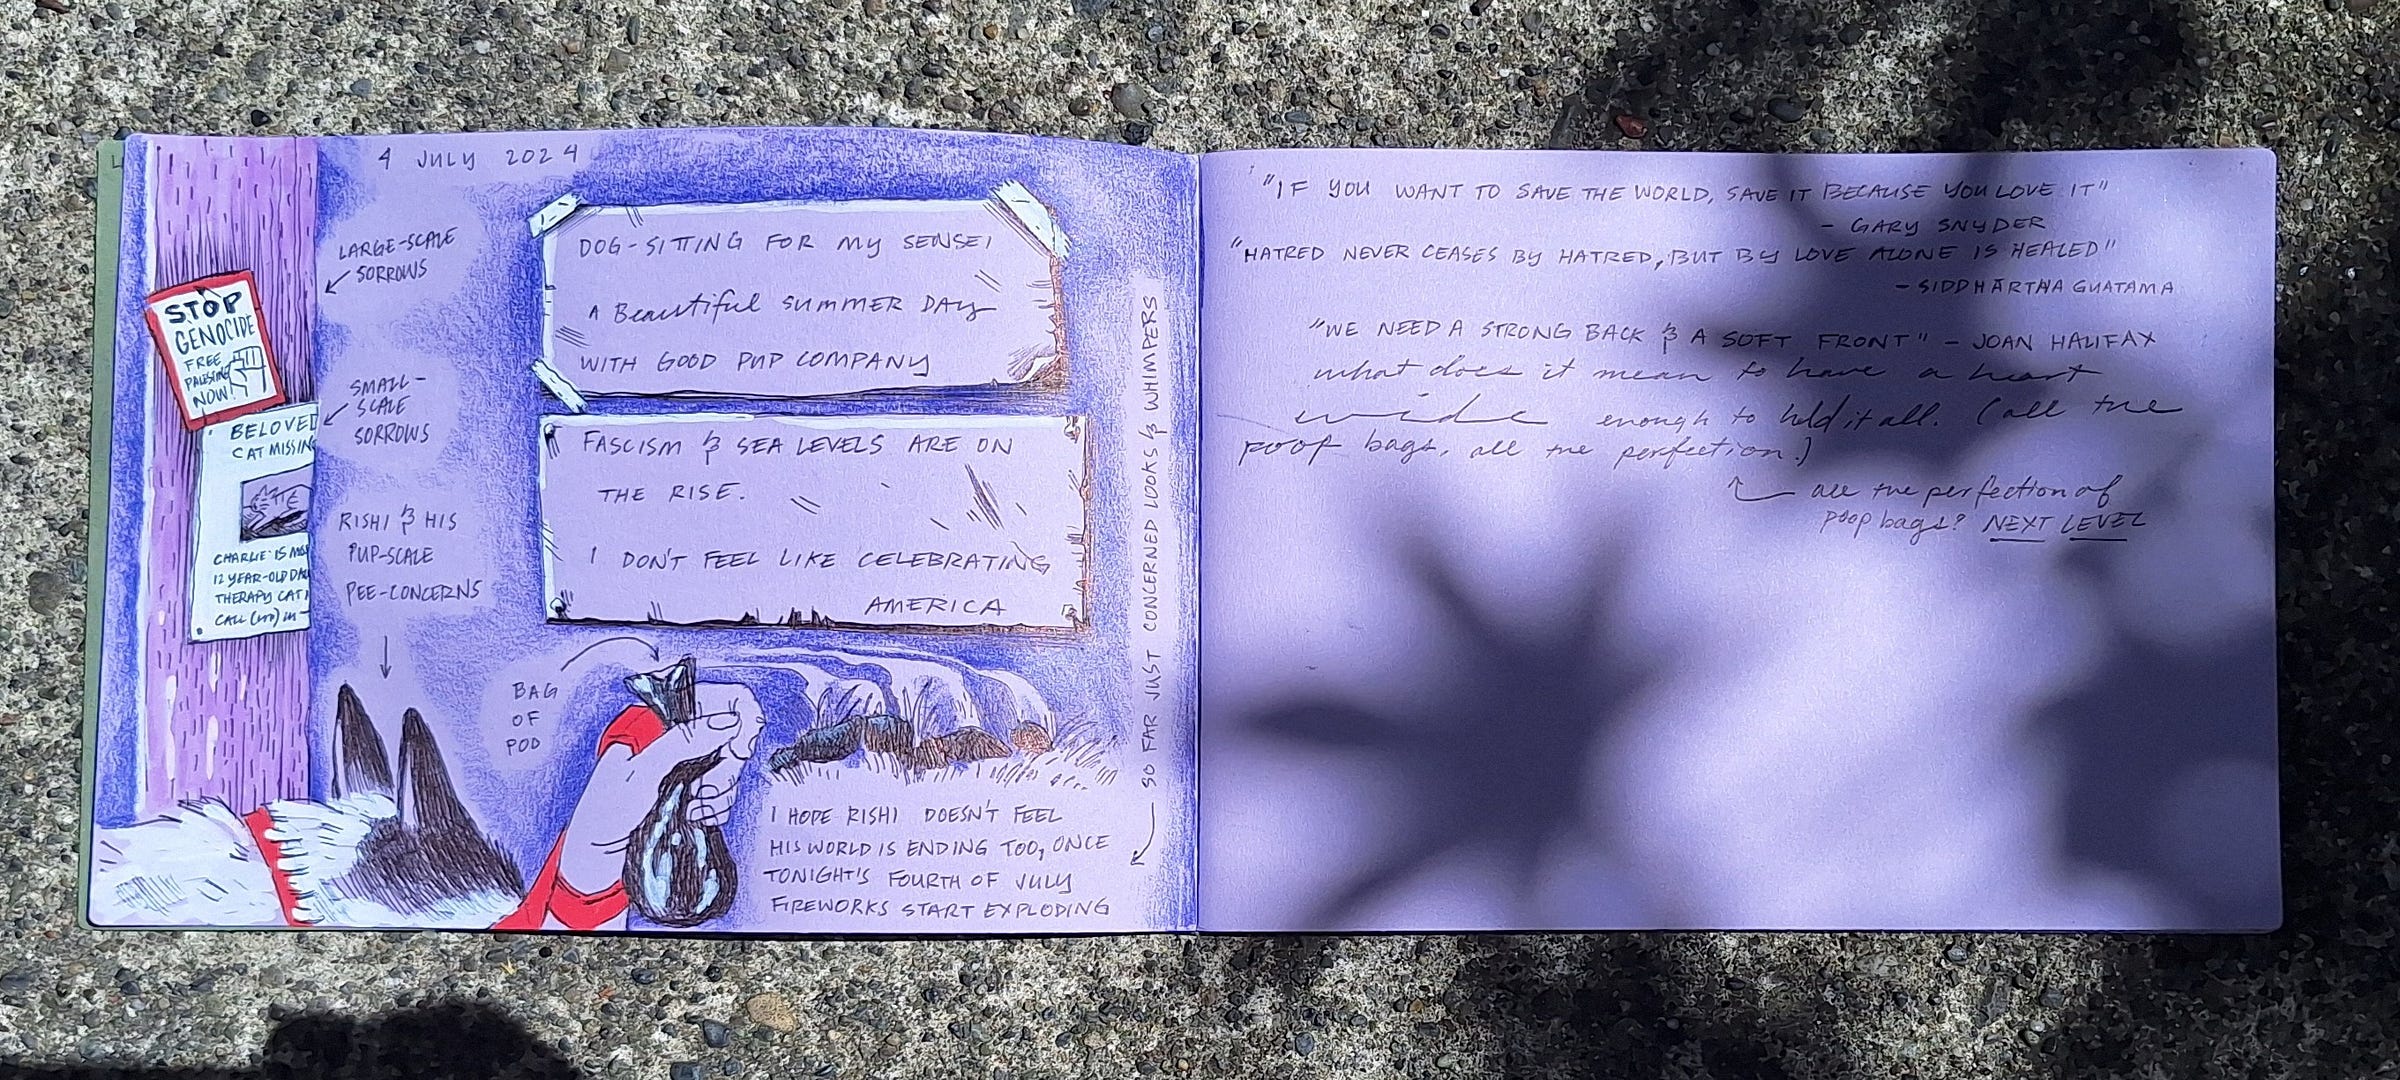 4 JULY 2024
LARGE-SCALE
SORROWS
STOP
GENOCIDE
FREE
PALESTINE
NOW!
SMALL-
SCALE
SORROWS
BELOVED
CAT MISSING
CHARLIE IS
12 YEAR-OLD
THERAPY CAT
CALL
RISHI & HIS
PUP-SCALE
PEE-CONCERNS
DOG-SITTING FOR MY SENSEI
A Beautiful SUMMER DAY
WITH GOOD PUP COMPANY
FASCISM & SEA LEVELS ARE ON
THE RISE.
I DON'T FEEL LIKE CELEBRATING
AMERICA
BAG
OF
POO
I HOPE RISHI DOESN'T FEEL
HIS WORLD IS ENDING TOO, ONCE
TONIGHT'S FOURTH OF JULY
FIREWORKS START EXPLODING
SO FAR JUST CONCERNED LOOKS & WHIMPERS
"IF YOU WANT TO SAVE THE WORLD, SAVE IT BECAUSE YOU LOVE IT"
- GARY SNYDER
"HATRED NEVER CEASES BY HATRED, BUT BY LOVE ALONE IS HEALED"
- SIDDHARTHA GUATAMA
"WE NEED A STRONG BACK & A SOFT FRONT" - JOAN HALIFAX
what does it mean to have a heart
wide enough to hold it all. (all the
poop bags, all the perfection.)
all the perfection of
poop bags? NEXT LEVEL